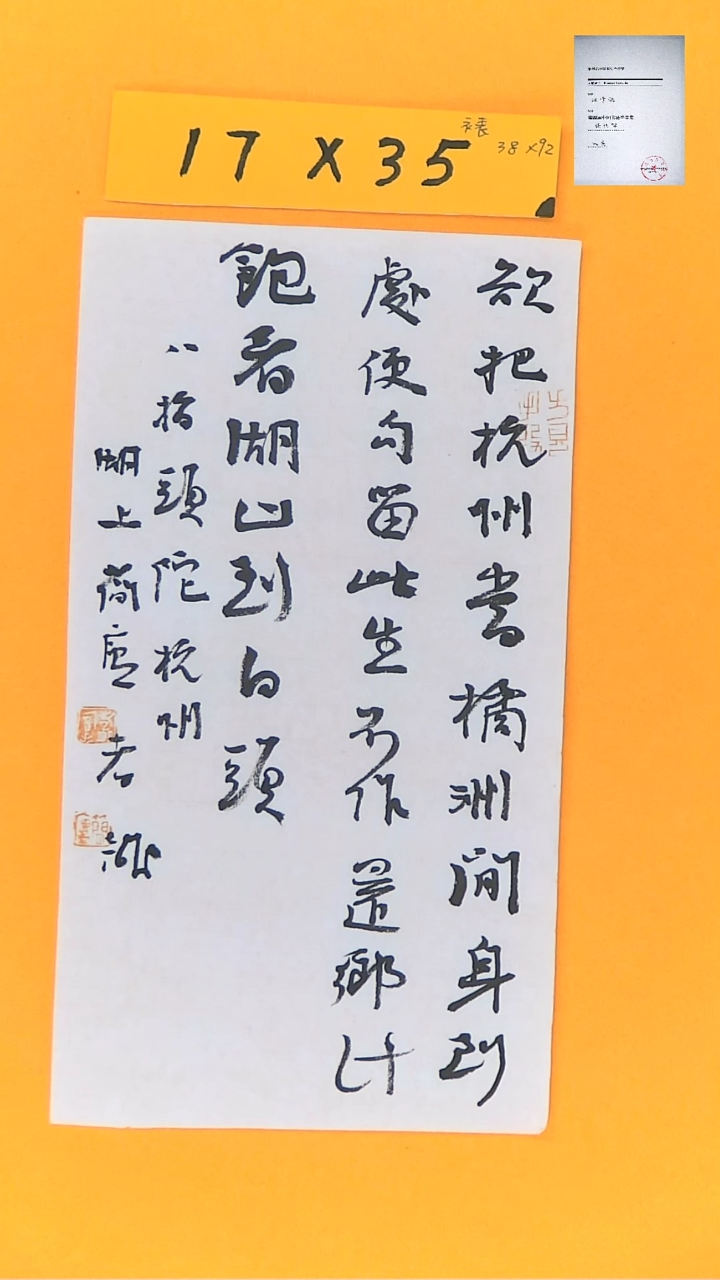 17 X 35
裱
38 X 92
欲把杭州当橘洲間身到
處便句留此生不作還鄉计
飽看湖山到白頭
八指頭陀杭州
湖上简廬
老海